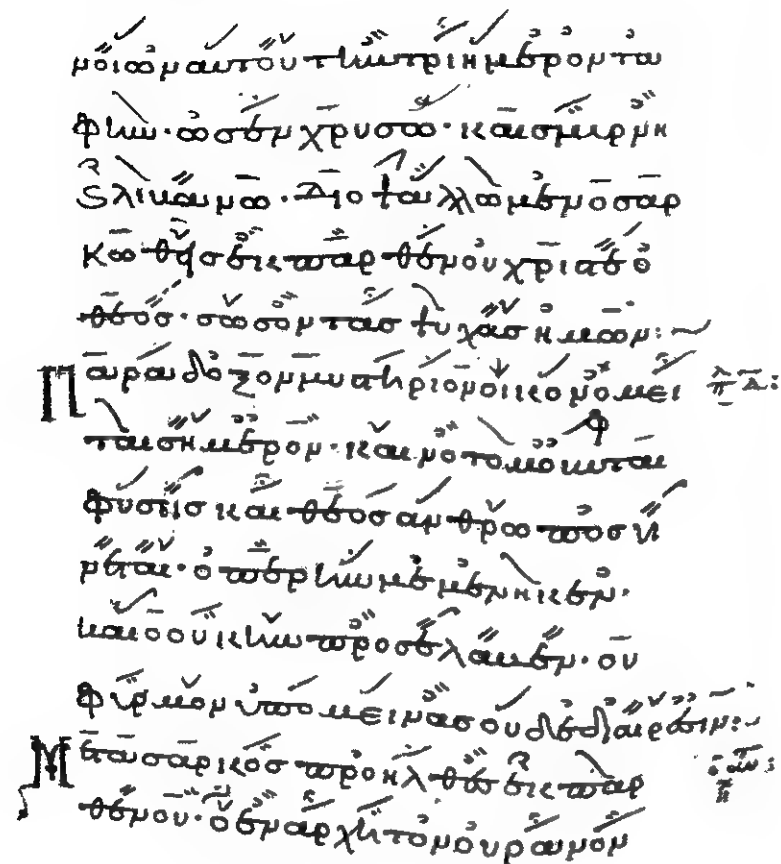 νοιων αυτου την τριημερον τα
φην· ως εν χρυσω· και σμυρνη
ϗ λιβανω· διο ψαλλωμεν ο σαρ
κωθεις εκ παρθενου χριστε ο
θεος· σωσον τας ψυχας ημων:
Παραδοξον μυστηριον οικονομει
ται σημερον· καινοτομουνται
φυσεις και θεος ανθρωπος γι
νεται· οπερ ην μεμενηκεν·
και ο ουκ ην προσελαβεν· ου
φυρμον υπομεινας ουδε διαιρεσιν:
σαρκος προηλθες εκ παρ
θενου· ο εν αρχη τον ουρανον